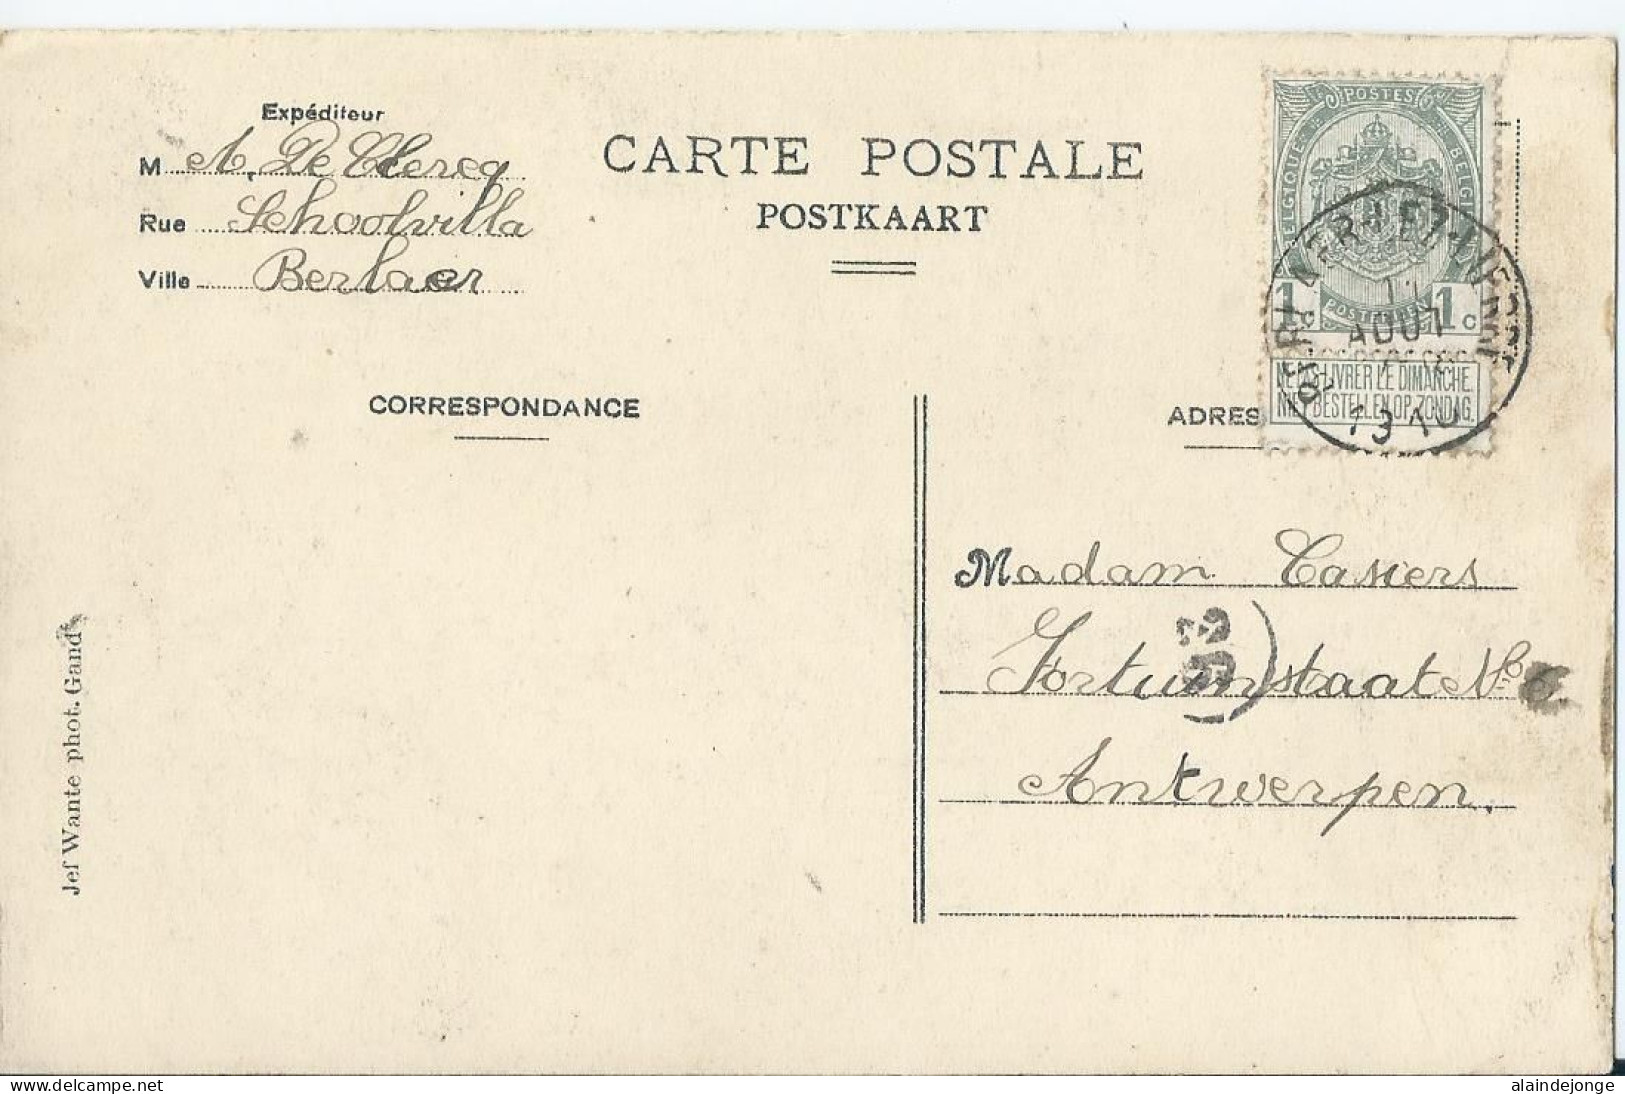 Expéditeur
M A. De Clercq
Rue Schoolvilla
Ville Berlaer
CARTE POSTALE
POSTKAART
POSTES
BELGIQUE
BELGIE
1 1 c
POSTERIJEN
NE PAS LIVRER LE DIMANCHE.
NIET BESTELLEN OP ZONDAG.
11
AOUT
1910
CORRESPONDANCE
ADRES
Madam Casiers
Fortuinstaat No
Antwerpen.
Jef Wante phot. Gand
delcampe.net
alaindejonge